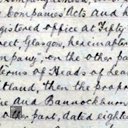 Companies Acts and h
gistered office at Fifty
reet, Glasgow, hereinafter
mpany, on the other par
erms of Heads of Leas
tland, then the propr
ie and Bannockburn
on part, dated eighte